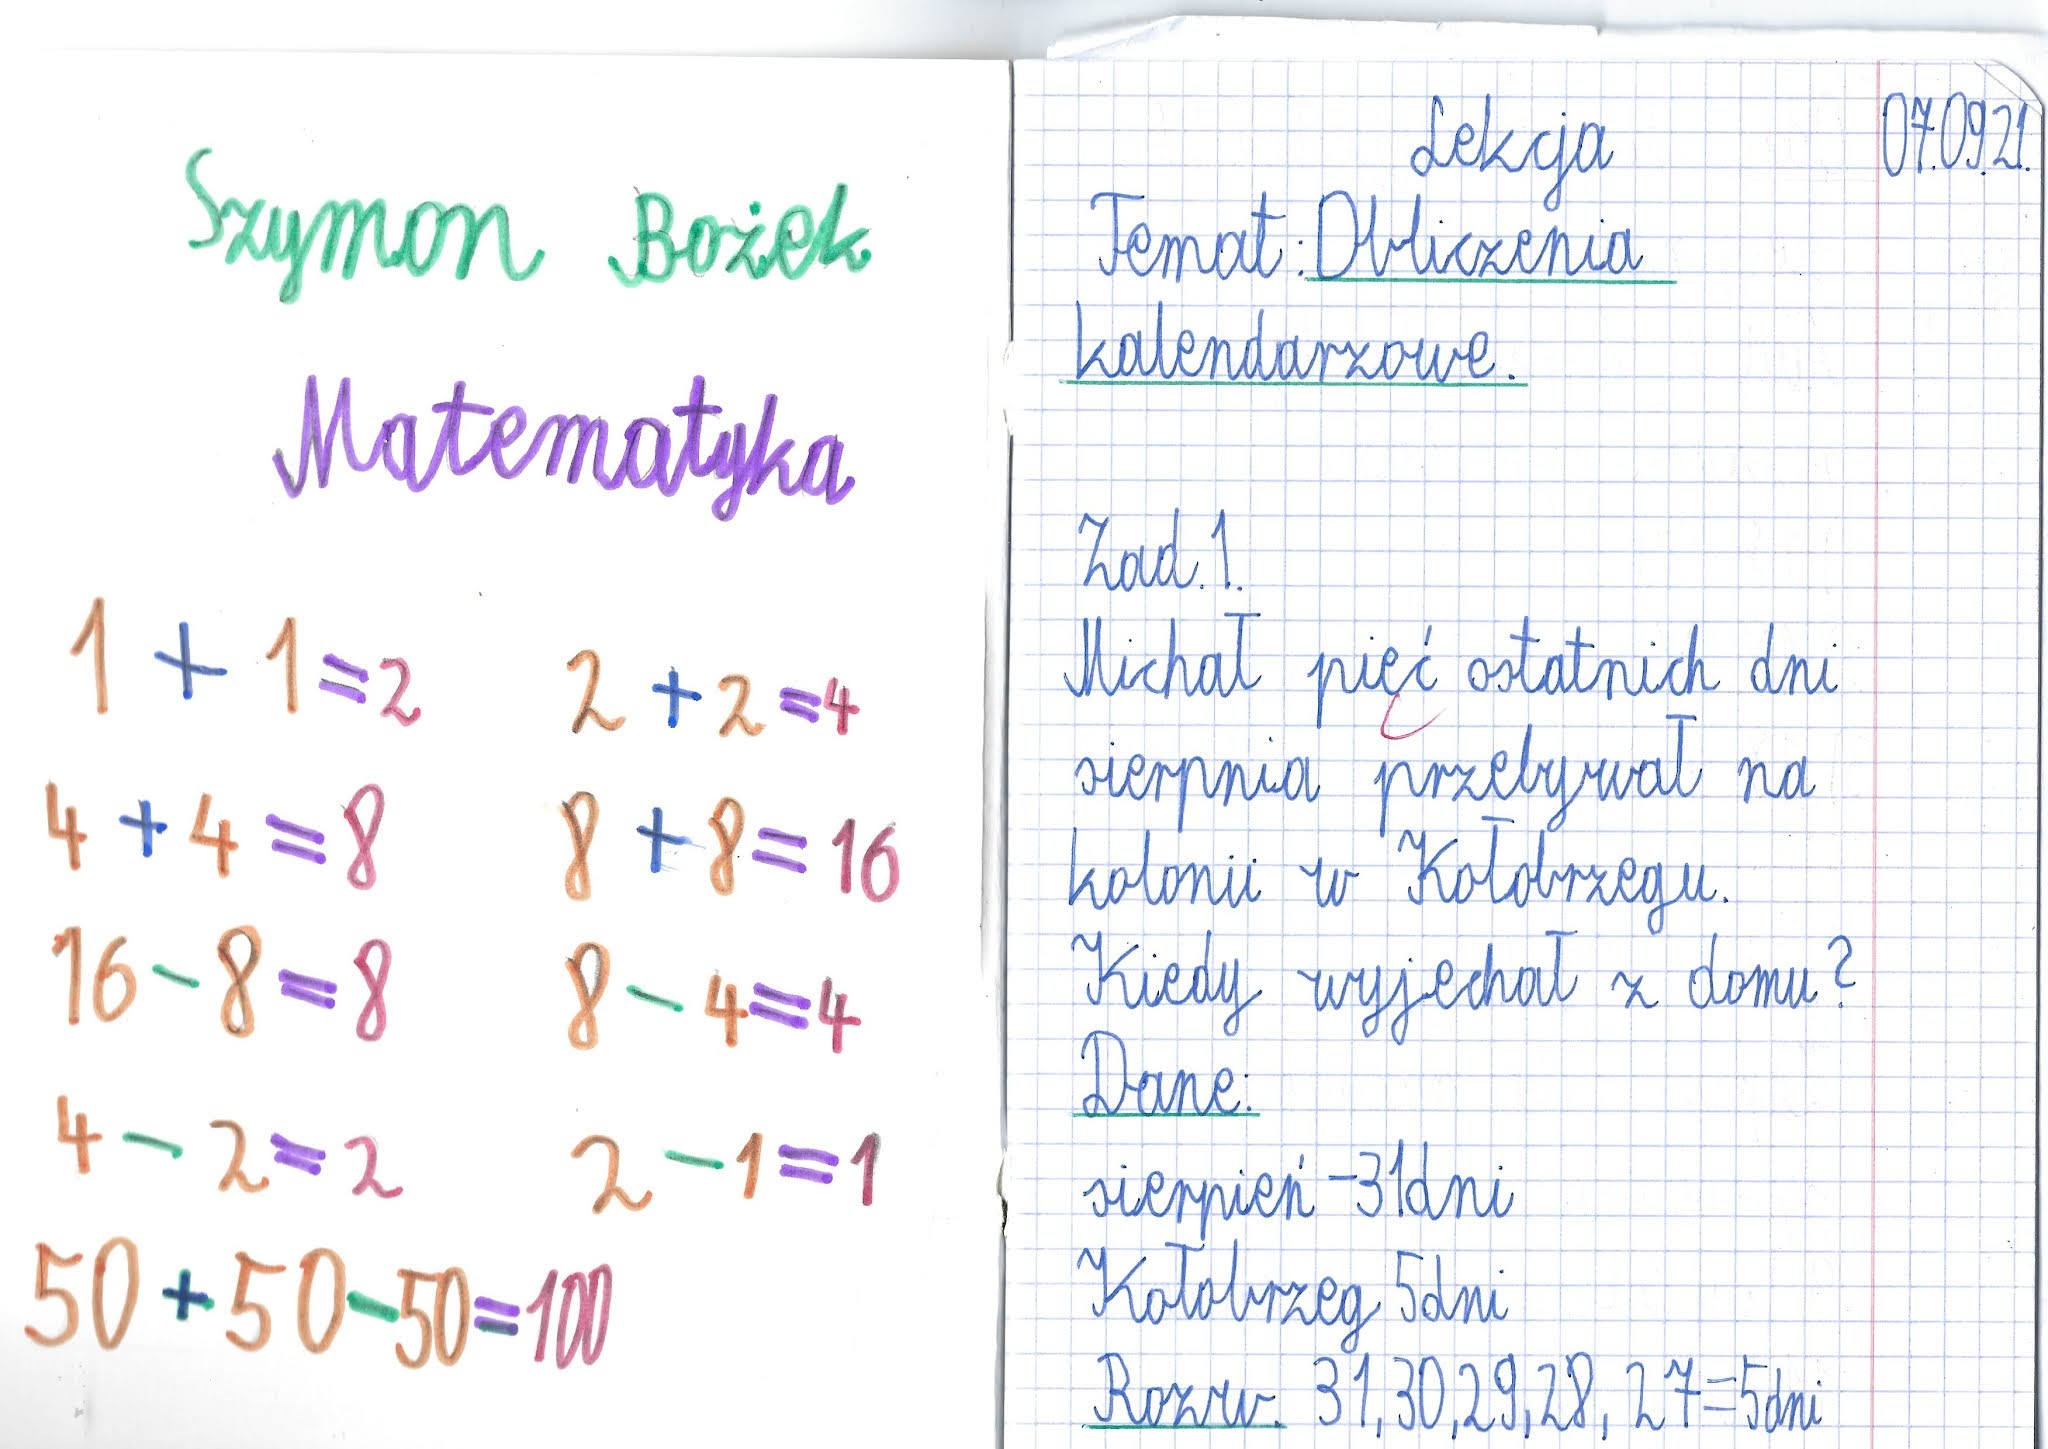 Szymon Bożek
Matematyka
1 + 1 = 2 2 + 2 = 4
4 + 4 = 8 8 + 8 = 16
16 - 8 = 8 8 - 4 = 4
4 - 2 = 2 2 - 1 = 1
50 + 50 - 50 = 100
Lekcja 07.09.21.
Temat: Obliczenia
kalendarzowe.
Zad. 1.
Michał pięć ostatnich dni
sierpnia przebywał na
kolonii w Kołobrzegu.
Kiedy wyjechał z domu?
Dane:
sierpień - 31 dni
Kołobrzeg 5 dni
Rozw. 31, 30, 29, 28, 27 = 5 dni